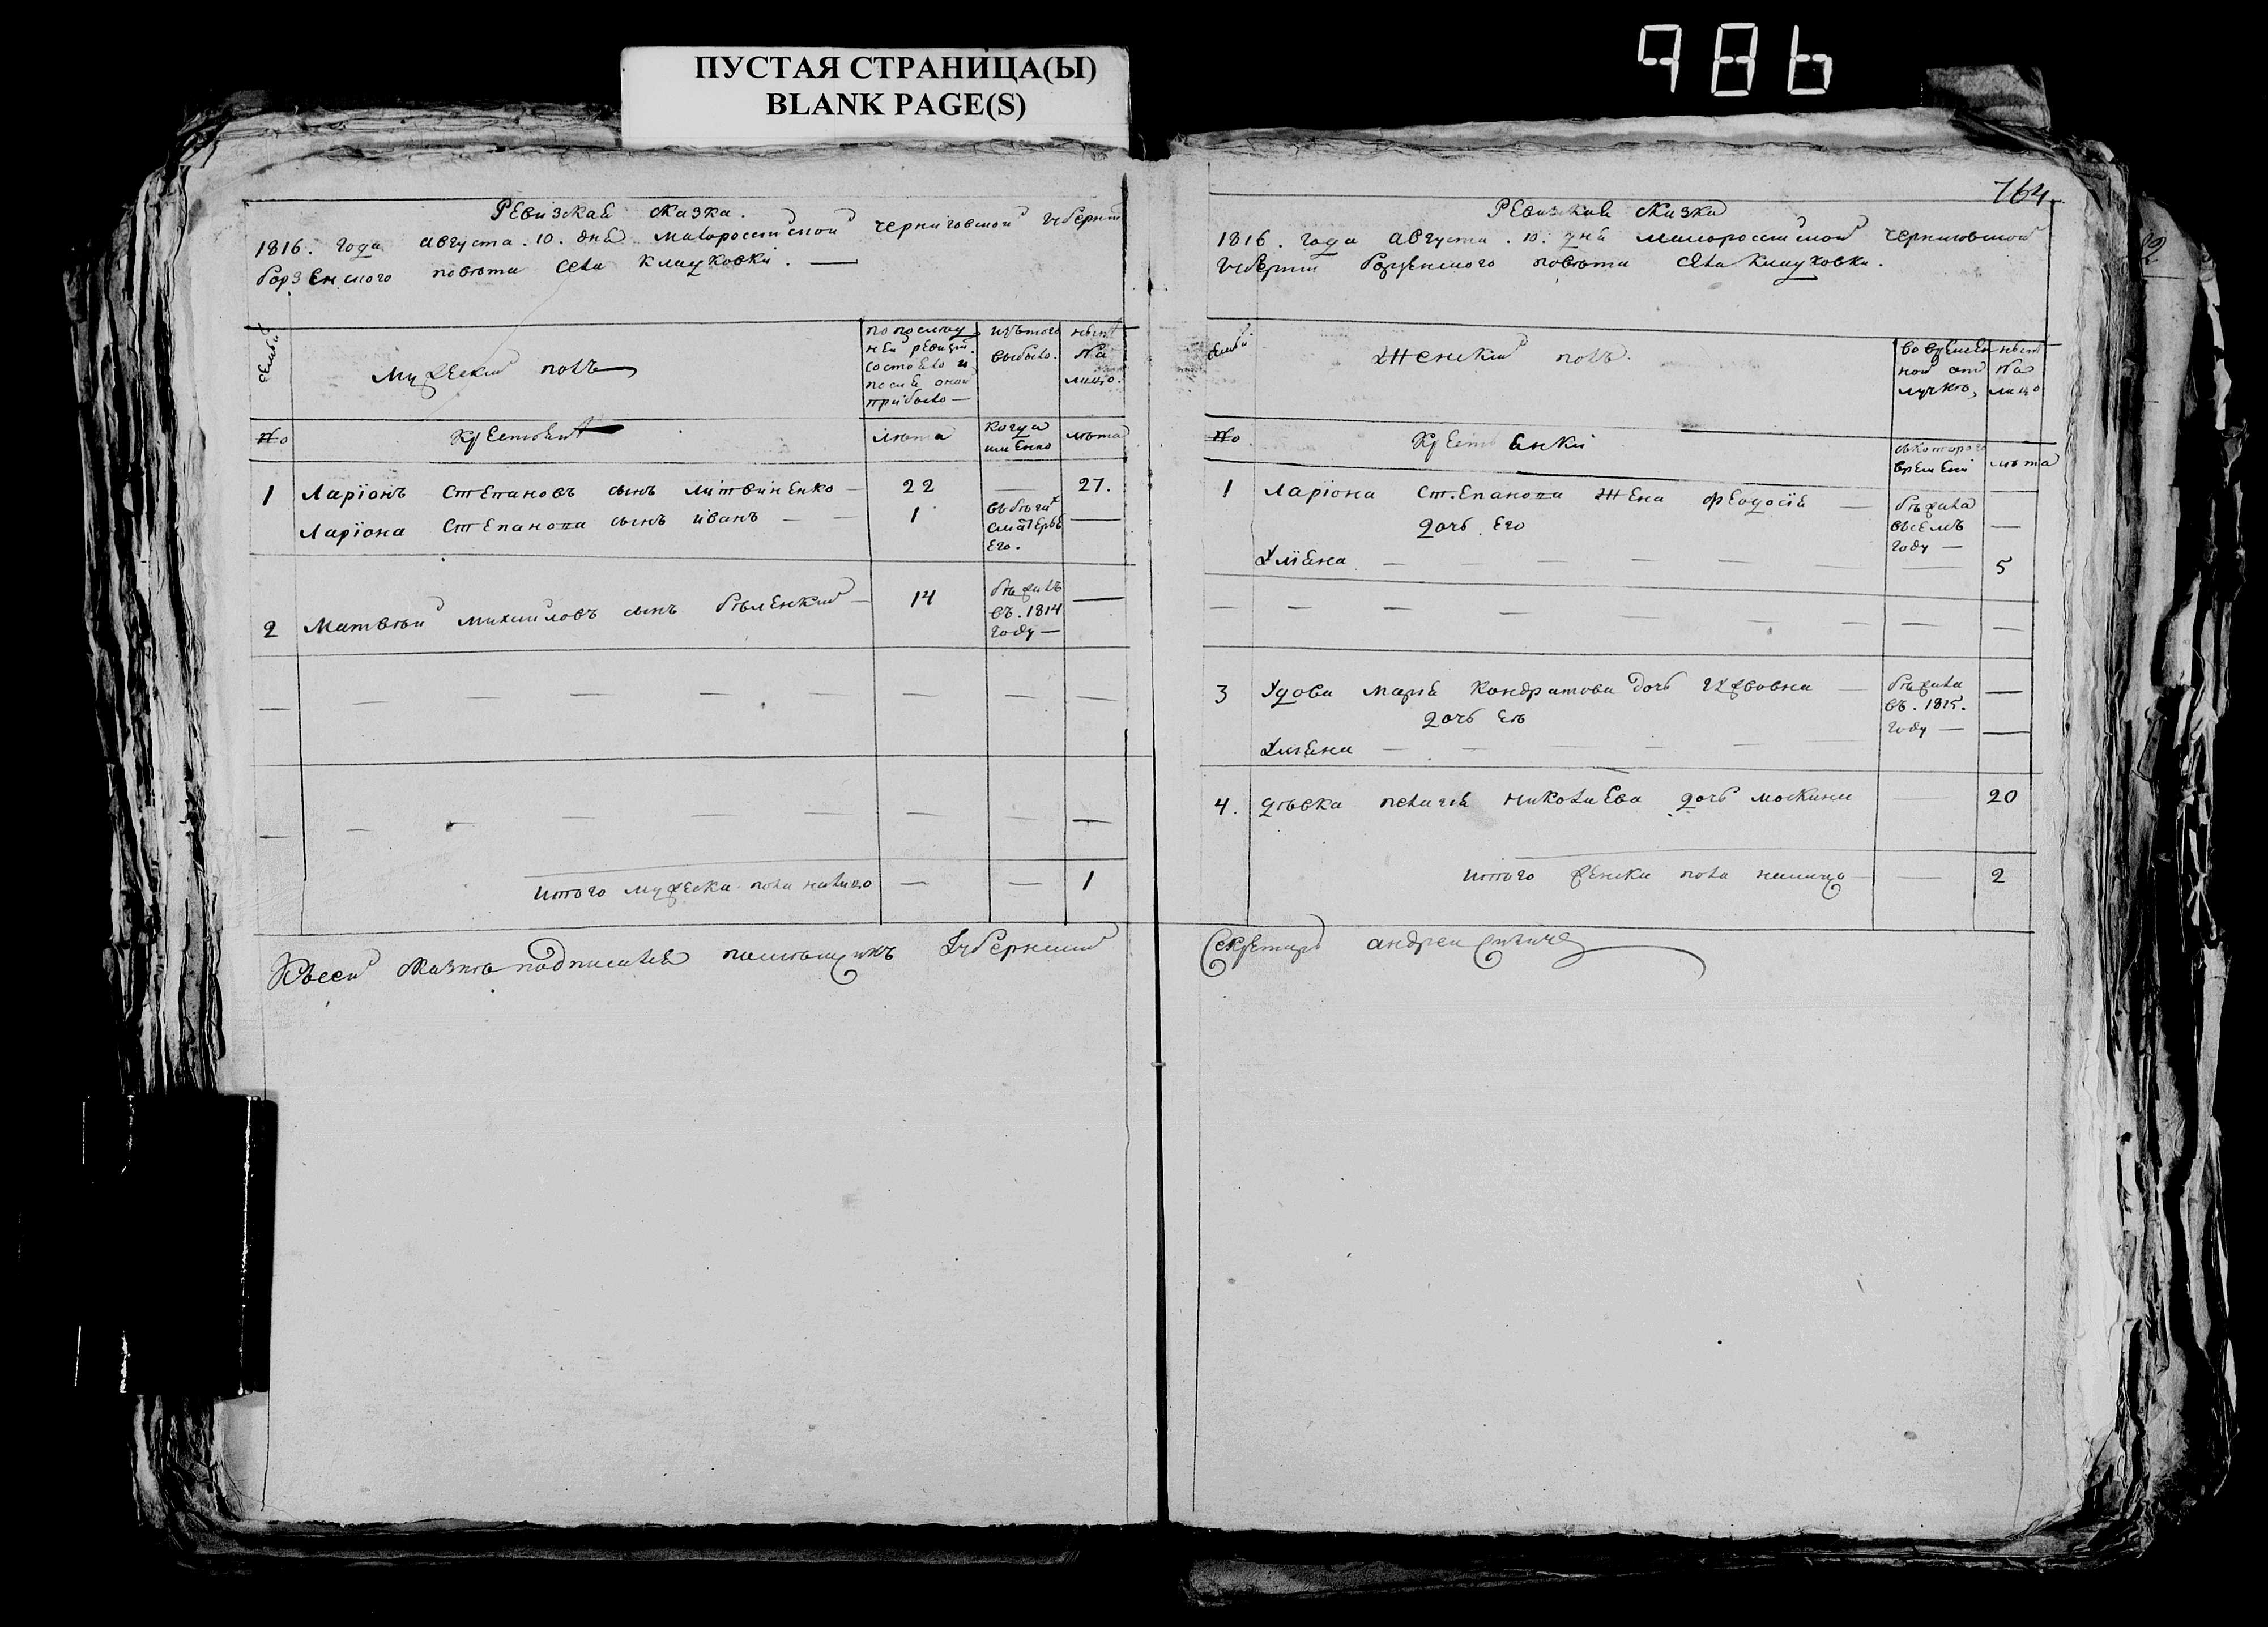 ПУСТАЯ СТРАНИЦА(Ы)
BLANK PAGE(S)
986
Ревизская сказка.
1816. года августа. 10. дня малороссийской черниговской губернии
борзенского повета села
семьи
мужеский полъ
по последней ревизии состояло и после оной прибыло
изътого выбыло.
ныне на лицо.
№
крестьяне
лета
когда именно
лета
1 Ларїонъ Степановъ сынъ литвиненко 22 — 27.
Ларїона Степанова сынъ иванъ — — 1 съматерью его. —
2 Матвей михайловъ сынъ беленкий 14 бежалъ въ. 1814 году — —
Итого мужеска пола налицо — — 1
Ксей сказке подписался помещикъ Губернский
764
Ревизская сказка
1816. года августа. 10. дня малороссийской черниговской
губернии борзенского повета села
семьи
Женский полъ.
во временной отлучке,
ныне на лицо
№
Крестьянки
съкоторого времени
лета
1 Ларїона Степанова жена феодосїя — бежала году — —
дочь его
Улїяна — — — — — — — 5
3 Удова марїя кондратова дочь — бежала въ. 1815. году — —
дочь ея
Улїяна — — — — —
4. девка пелагия николаева дочь — 20
Итого женска пола налицо — — 2
Секретарь андрей